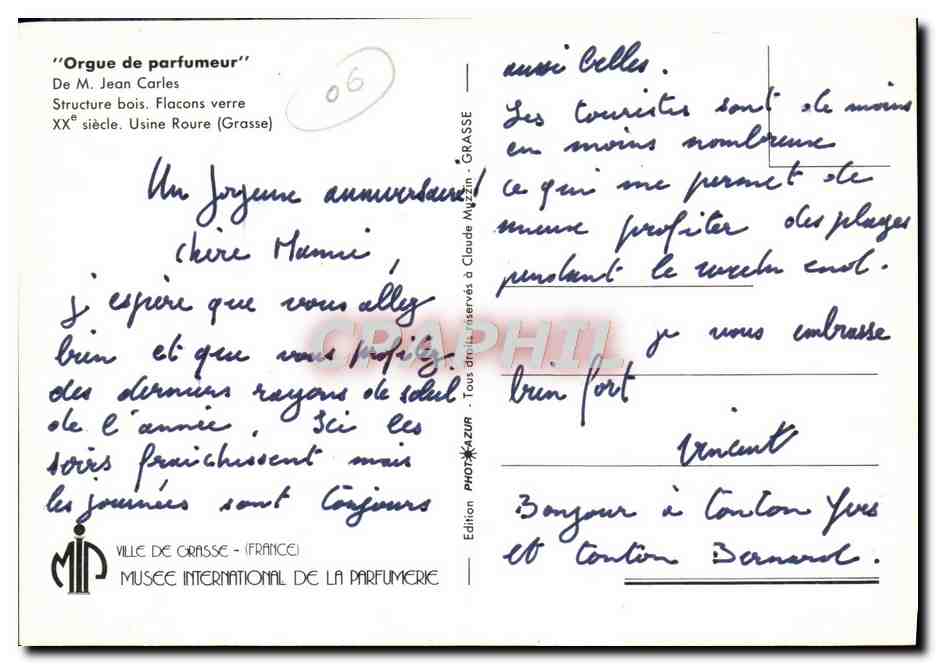 "Orgue de parfumeur"
De M. Jean Carles
Structure bois. Flacons verre
XXe siècle. Usine Roure (Grasse)
06
Un Joyeuse anniversaire!
Chère Mamie,
j'espère que vous allez
bien et que vous profitez
des derniers rayons de soleil
de l'année. Ici les
soirs fraichissent mais
les journées sont toujours
VILLE DE GRASSE - (FRANCE)
MIP
MUSEE INTERNATIONAL DE LA PARFUMERIE
Edition PHOT AZUR - Tous droits réservés à Claude Muzzin - GRASSE
CPAPHIL
aussi belles.
Les touristes sont de moins
en moins nombreuse
ce qui me permet de
mieux profiter des plages
pendant le week end.
je vous embrasse
bien fort
Vincent
Bonjour à tonton Yves
et tonton Bernard.